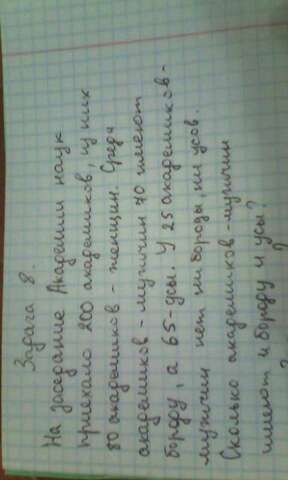 Задача 8.
На заседание Академии наук
приехало 200 академиков, из них
80 академиков - женщин. Среди
академиков - мужчин 70 имеют
бороду, а 65-усы. У 25 академиков-
мужчин нет ни бороды, ни усов.
Сколько академиков-мужчин
имеют и бороду и усы?